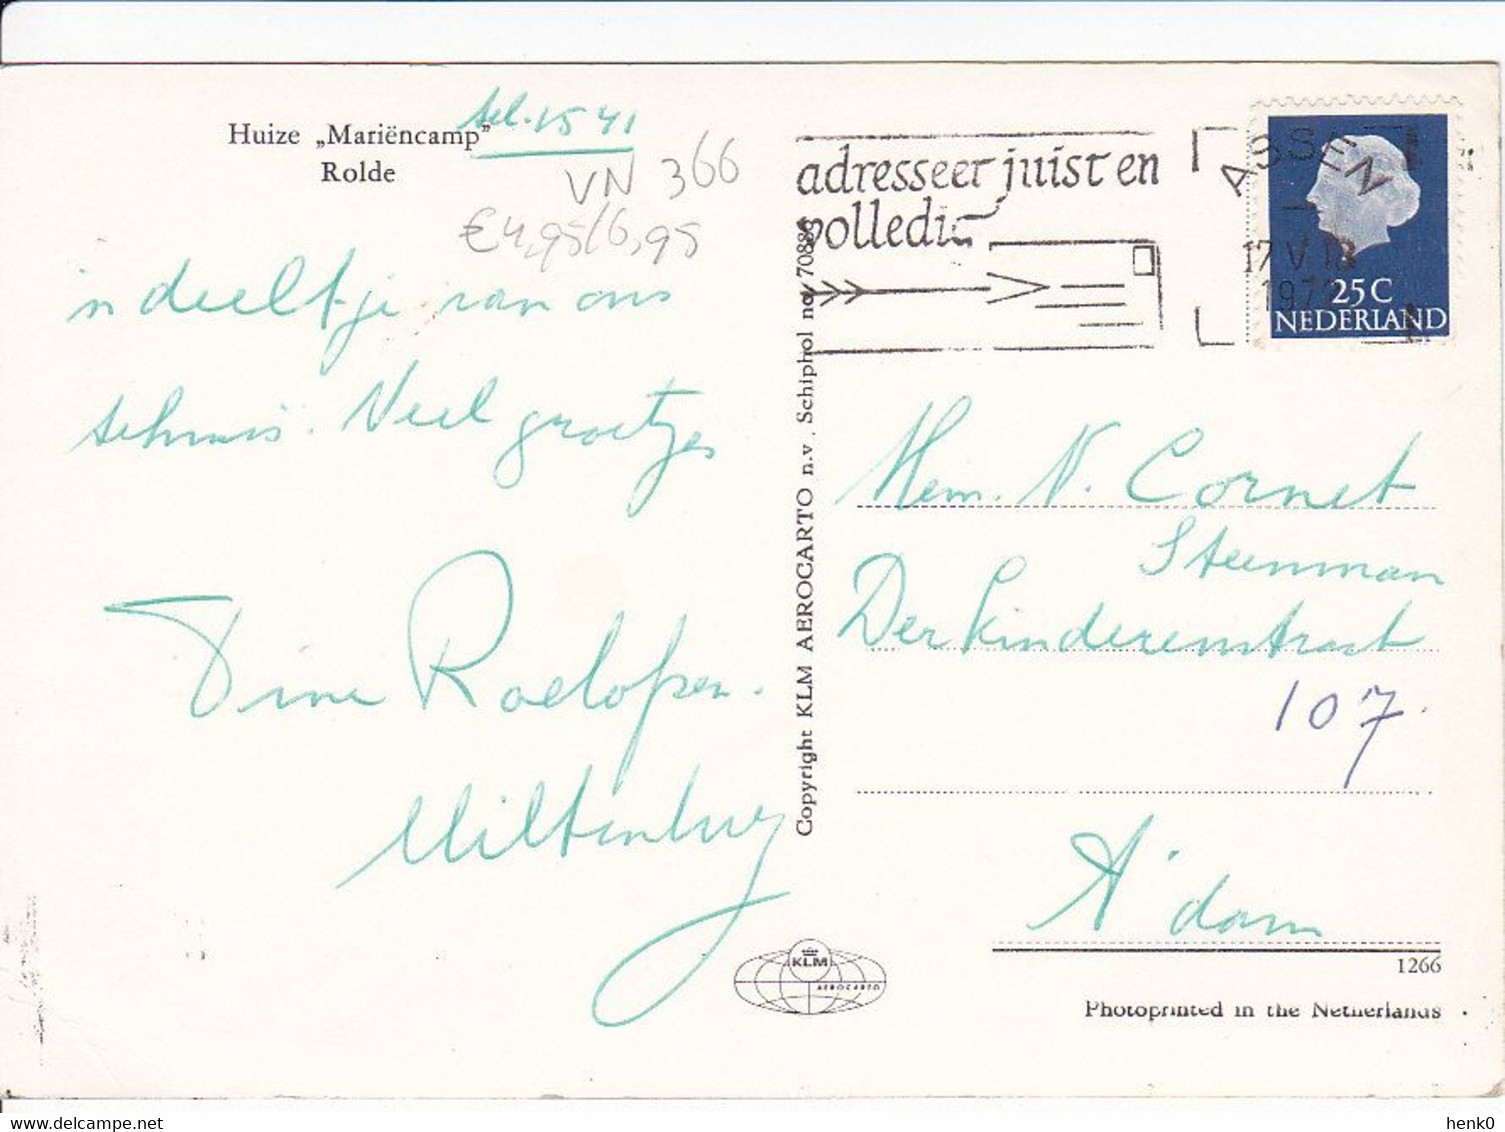 Huize „Mariëncamp”
Rolde
tel. 1541
VN 366
€4,95/6,95
'n deeltje van ons
tehuis. Veel groetjes
Tine Roelofsen.
Miltenburg
Copyright KLM AEROCARTO n.v. Schiphol no. 7088
adresseer juist en
volledig
ASSEN
17 V 18
197
25 C
NEDERLAND
Mem. N. Cornet
Steenman
Derkinderenstraat
107
A'dam
KLM
AEROCARTO
1266
Photoprinted in the Netherlands
henk0